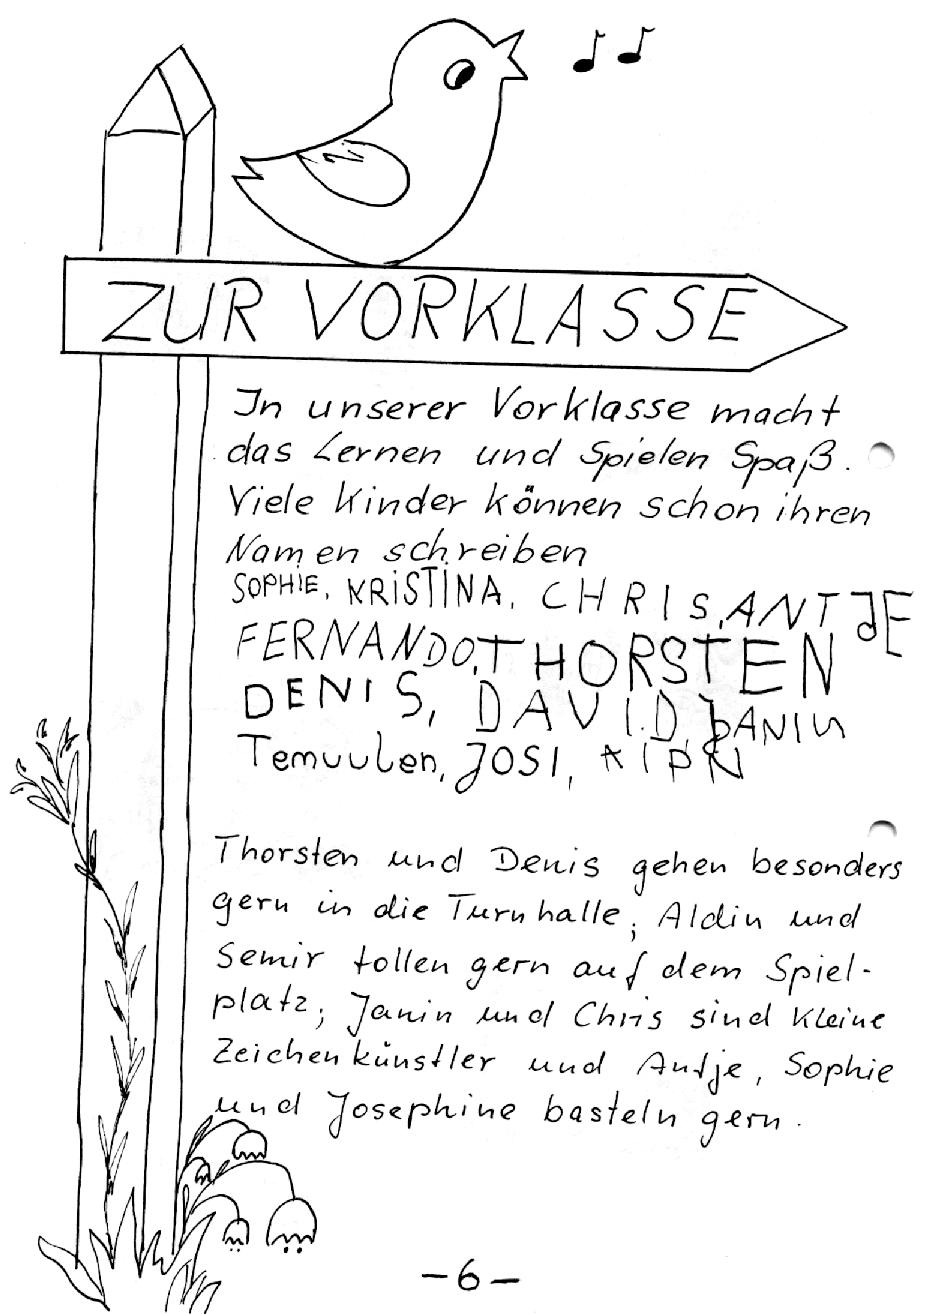 ZUR VORKLASSE
In unserer Vorklasse macht
das Lernen und Spielen Spaß.
Viele Kinder können schon ihren
Namen schreiben
SOPHIE, KRISTINA, CHRIS, ANTJE
FERNANDO, THORSTEN
DENIS, DAVID, JANIN
Temuulen, JOSI,
Thorsten und Denis gehen besonders
gern in die Turnhalle; Aldin und
Semir tollen gern auf dem Spiel-
platz; Janin und Chris sind kleine
Zeichenkünstler und Antje, Sophie
und Josephine basteln gern.
-6-